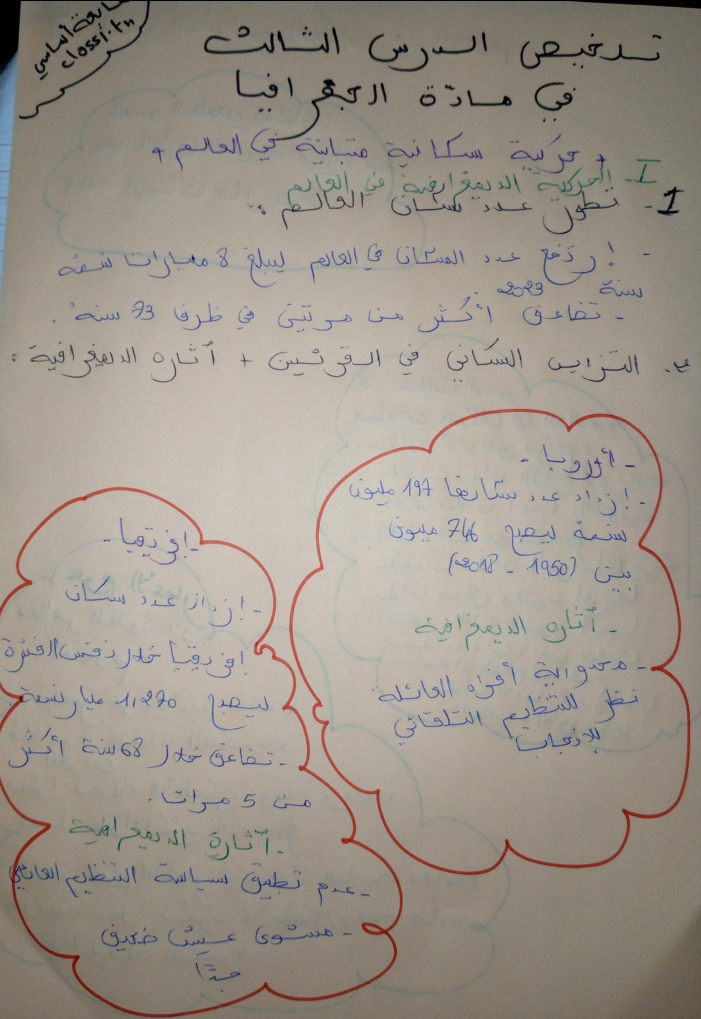 سابعة أساسي
classi.tn
تلخيص الدرس الثالث
في مادّة الجغرافيا
+ حركية سكانية متباينة في العالم +
I- الحركية الديمغرافية في العالم
1- تطور عدد سكان العالم :
- إرتفع عدد السكان في العالم ليبلغ 8 مليارات نسمة
سنة 2023
- تضاعف أكثر من مرتين في ظرف 73 سنة.
2. التزايد السكاني في القرنين + آثاره الديمغرافية :
- أوروبا -
- إزداد عدد سكانها 197 مليون
نسمة ليصبح 746 مليون
بين (1950 - 2018)
- آثاره الديمغرافية
- محدودية أفراد العائلة
نظر للتنظيم التلقائي
للإنجاب
- إفريقيا -
- إزداد عدد سكان
إفريقيا خلال نفس الفترة
ليصبح 1,270 مليار نسمة
- تضاعف خلال 68 سنة أكثر
من 5 مرات.
- آثاره الديمغرافية
- عدم تطبيق سياسة التنظيم العائلي
- مستوى عيش ضعيف
جدّا